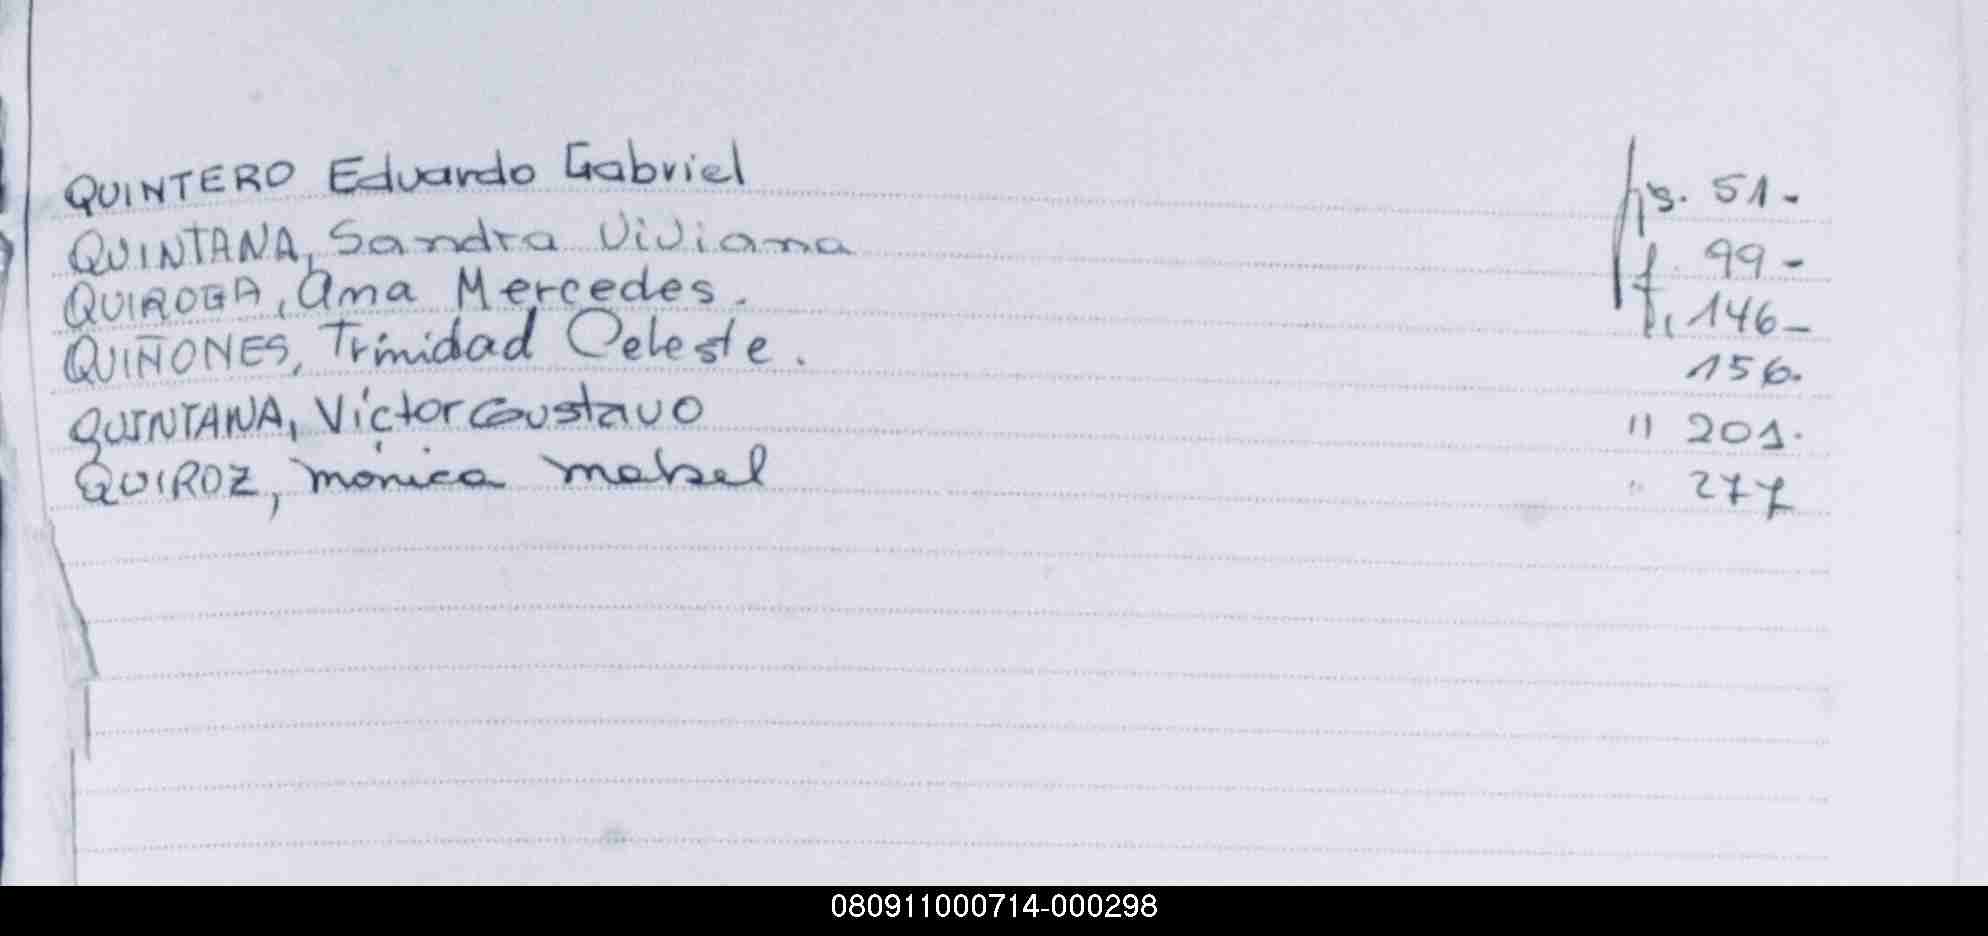 QUINTERO Eduardo Gabriel fs. 51-
QUINTANA, Sandra Viviana f. 99-
QUIROGA, Ana Mercedes. f. 146-
QUIÑONES, Trinidad Celeste. 156.
QUINTANA, Víctor Gustavo " 201.
QUIROZ, mónica mabel " 277
080911000714-000298